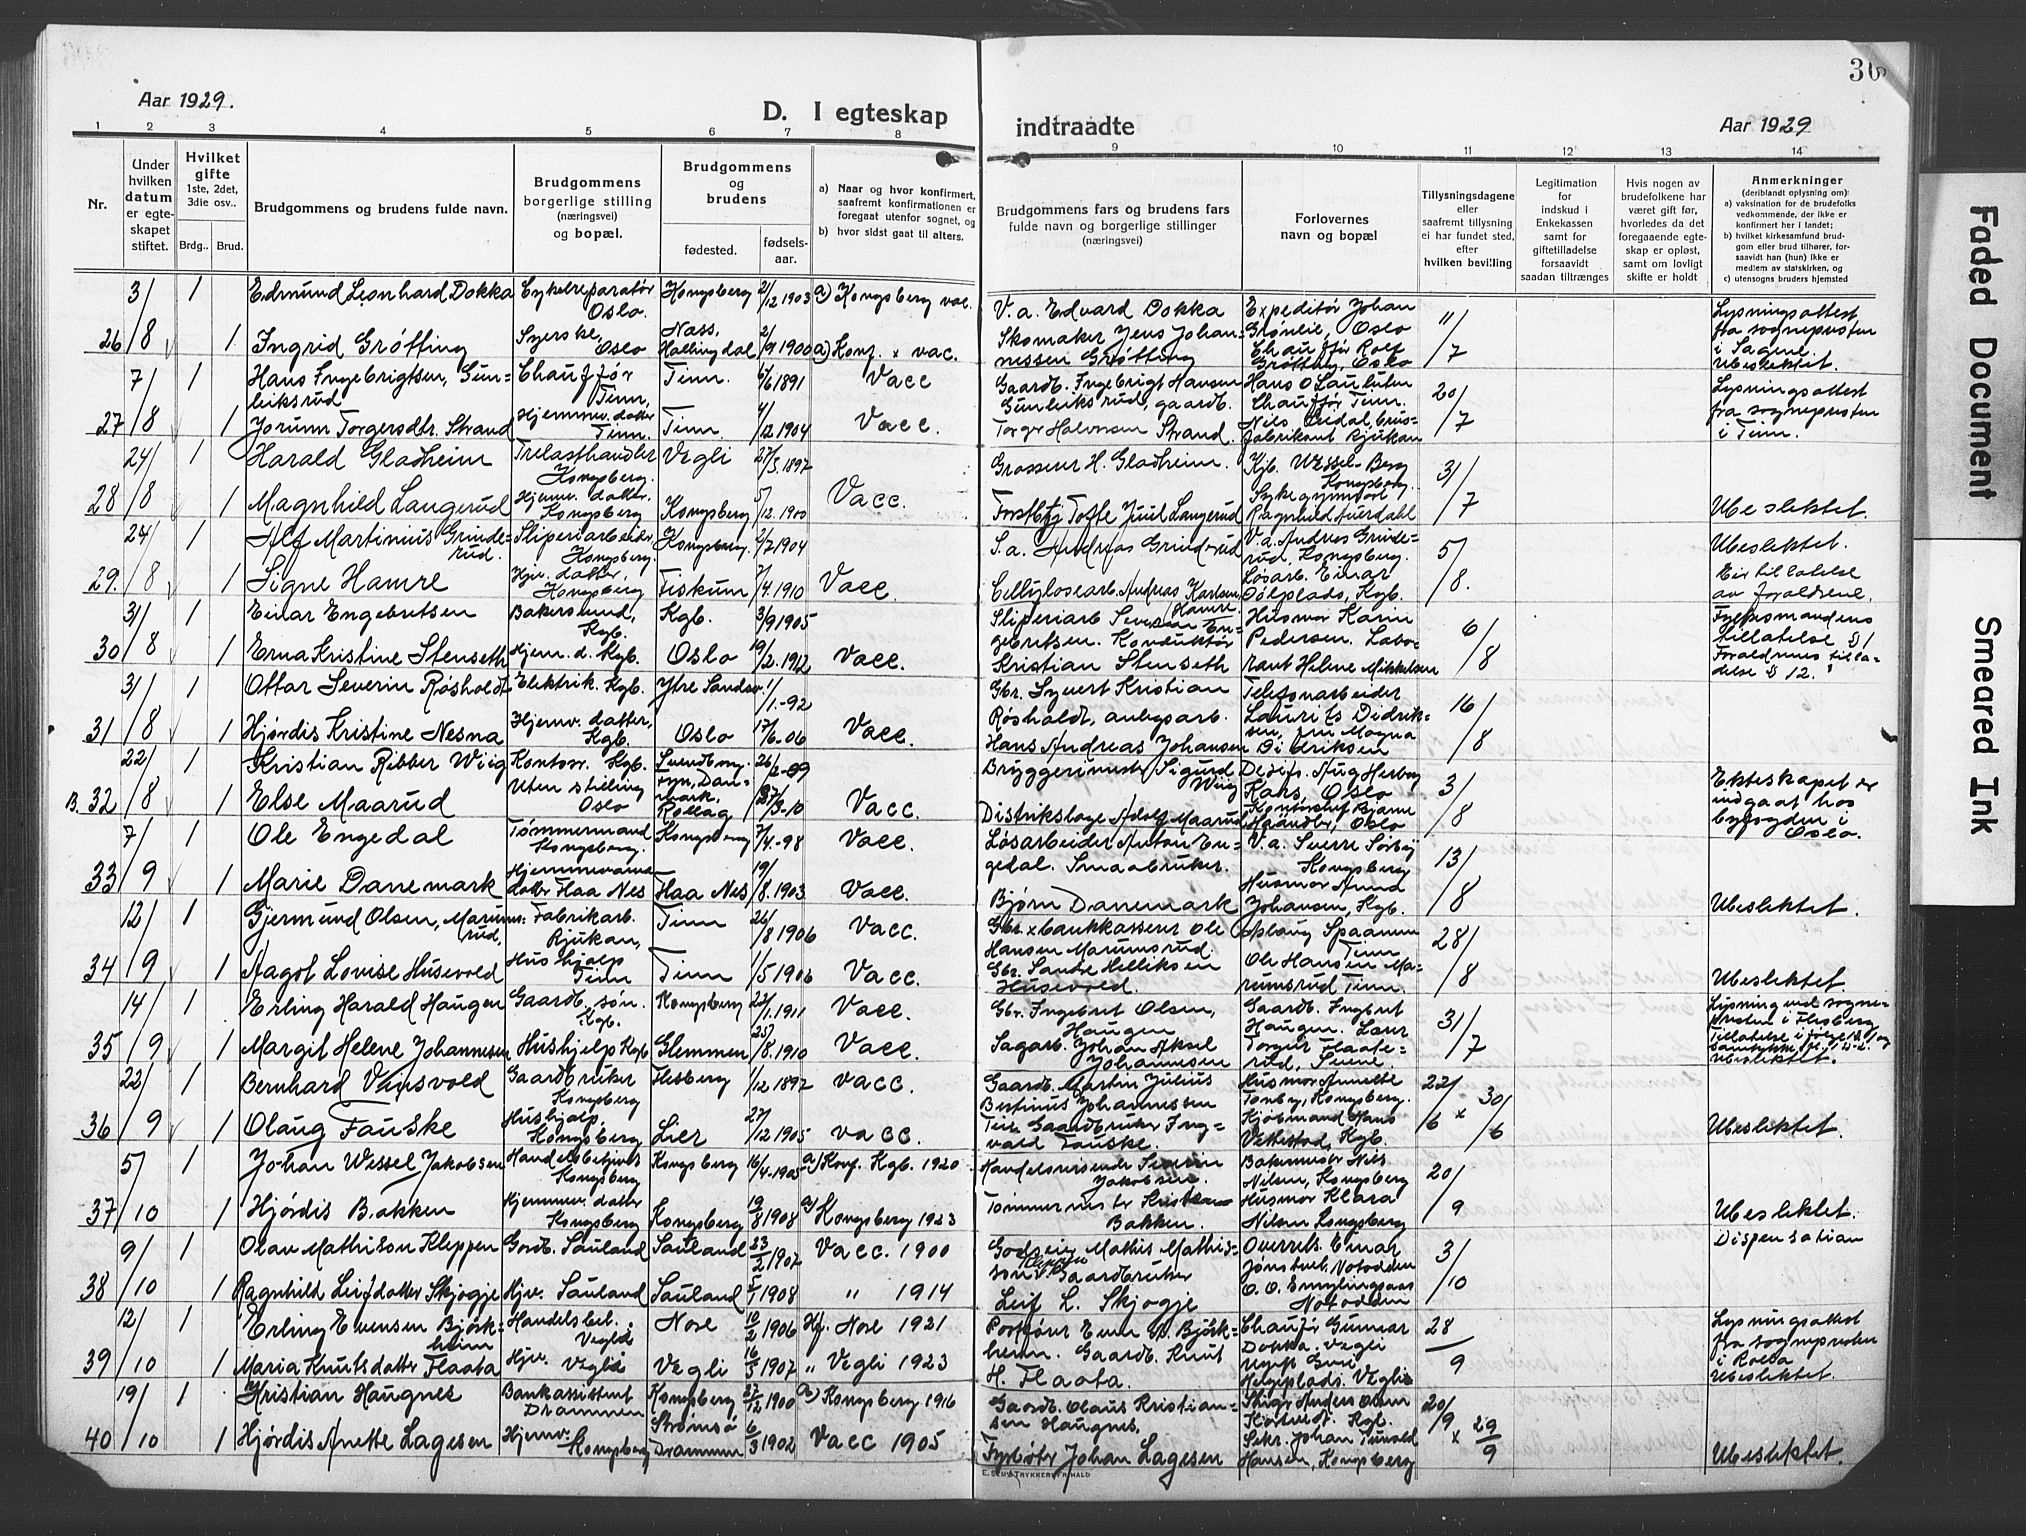 Aar 1929.
D. I egteskap
indtraadte
Aar 1929
36
1 2 3 4 5 6 7 8 9 10 11 12 13 14
Nr.
Under hvilken datum er egte-skapet stiftet.
Hvilket gifte
1ste, 2det, 3die osv..
Brdg.. Brud.
Brudgommens og brudens fulde navn.
Brudgommens borgerlige stilling (næringsvei) og bopæl.
Brudgommens og brudens
fødested. fødsels-aar.
a) Naar og hvor konfirmert, saafremt konfirmationen er foregaat utenfor sognet, og
b) hvor sidst gaat til alters.
Brudgommens fars og brudens fars fulde navn og borgerlige stillinger (næringsvei)
Forlovernes navn og bopæl
Tillysningsdagene eller saafremt tillysning ei har fundet sted, efter hvilken bevilling
Legitimation for indskud i Enkekassen samt for giftetilladelse forsaavidt saadan tiltrænges
Hvis nogen av brudefolkene har været gift før, hvorledes da det foregaaende egte-skap er opløst, samt om lovligt skifte er holdt
Anmerkninger
(deriblandt oplysning om):
a) vaksination for de brudefolks vedkommende, der ikke er konfirmert her i landet;
b) hvilket kirkesamfund brud-gom eller brud tilhører, for-saavidt han (hun) ikke er medlem av statskirken, og
c) utensogns bruders hjemsted
3/8 1 Edmund Leonhard Dokka Cykelreparatør Oslo. Kongsberg 2/12 1903 a) Kongsberg vac. V.a. Edvard Dokka Expeditør Johan Grøneie, Oslo 11/7 Lysningsattest fra sognepresten i Sagene. Ubeslektet.
26 1 Ingrid Grøtting Syerske, Oslo Næss, Hallingdal 2/9 1900 a) Konf. x vac. Skomaker Jens Johan-nessen Grøtting Chauffør Rolf Grøtting, Oslo
7/8 1 Hans Ingebrigtsen, Gun-leiksrud Chauffør Tinn. Tinn. 6/6 1891 Vacc Gaardb. Ingebrigt Hansen Gunleiksrud, gaardb. Hans O Chauffør Tinn. 20/7 Lysningsattest fra sognepresten i Tinn.
27 1 Jorunn Torgersdtr. Strand Hjemmev. datter Tinn. Tinn. 4/12 1904 Vacc. Torger Halvorsen Strand. Nils fabrikant Rjukan
24/8 1 Harald Gladheim Trelasthandler Kongsberg. Vegli 27/5 1897 Grosserer H. Gladheim. Kjb. Wessel-Berg Kongsberg. 31/7
28 1 Magnhild Langerud Hjemv. datter. Kongsberg Kongsberg 5/12 1900 Vacc. Tofte Juul Langerud Ragnhild Ubeslektet.
24/8 1 Alf Martinius Grinde-rud. Sliperiarbeider Kongsberg. Kongsberg. 2/7 1904 S.a. Andreas Grinderud V.a. Andreas Grinde-rud, Kongsberg. 5/8. Ubeslektet.
29. 1 Signe Hamre Hjv. datter, Kongsberg Fiskum 7/4 1910 Vacc. Cellulosearb. Andreas Karlsen Hamre. Løsarb. Einar Kgb. Eir tillatelse av foreldrene.
31/8 1 Einar Engebretsen Bakersvend, Kgb. Kgb. 3/9 1905 Sliperiarb Severin En-gebretsen. Konduktør Husmor Karin Pedersen. Labo- 6/8 Fylkesmandens tillatelse § 1
30 1 Erna Kristine Stenseth Hjem. d. Kgb. Oslo 19/2 1912 Vacc. Kristian Stenseth rant Helene Mikkelsen Foreldrenes tilla-delse § 12.
31/8 1 Ottar Severin Røsholdt Elektrik. Kgb. Ytre Sandsv. 1/1.-92 Gbr. Syvert Kristian Røsholdt, anlegsarb. Telefonarbeider Laurits Didrik-sen, fru Magna 16/8
31 1 Hjørdis Kristine Nesna Hjemv. datter, Kgb. Oslo 17/6-06 Vacc. Hans Andreas Johansen Didriksen
22/8 1 Kristian Ribber Wiig Kontor. Kgb. Svendborg. Fyn, Dan-mark. 26/2-09 Bryggerimester Sigurd Wiig Hans, Oslo 3/8 Ekteskapet er indgaat hos byfogden i Oslo.
B. 32 1 Else Maarud Uten stilling Oslo Rollag Vacc. Distriktslæge Adolf Maarud Kontorchef Bjarne Oslo
7/9 1 Ole Engedal Tømmermand Kongsberg. Kongsberg 7/4.-98 Vacc. Løsarbeider Anton En-gedal. Smaabruker. V.a. Sverre Sørby Kongsberg 13/8
33 1 Marie Danemark Hjemmeværende datter Flaa Nes Flaa Nes 19/8.1903 Vacc. Bjørn Danemark Husmor Anna Johansen, Kgb. Ubeslektet.
12/9 1 Gjermund Olsen, Marums-rud, Fabrikarb. Rjukan, Tinn 26/8 1906 Vacc. Gbr. x bankkasserer Ole Hansen Marumsrud. Aslaug Spaanem Tinn 28/8
34 1 Aagot Lovise Husevold Hushjelp Tinn Tinn 1/5 1906 Vacc. Gbr. Sondre Helliksen Husevold. Ole Hansen Ma-rumsrud Tinn. Ubeslektet.
14/9 1 Erling Harald Haugen Gaardb. søn. Kgb. Kongsberg 22/1.1911 Vacc. Gbr. Ingebret Olsen, Haugen Gaardb. Ingbret Haugen. 31/7 Lysning ved sogne-presten i Flesberg
35 1 Margit Helene Johannesen Hushjelp Kgb Glemmen 25/8.1910 Vacc. Sagarb. Johan Aksel Johannesen Torger Flaate-rud, Svene Ubeslektet.
22/9 1 Bernhard Vansvold Gaardbruker Kongsberg Flesberg 1/12 1897 vacc. Gaardb. Martin Julius Bertinus Johannessen Husmor Annette Tonby, Kongsberg. 22/6 x 30/6
36 1 Olaug Fauske Hushjelp, Kongsberg Lier 27/12 1905 vacc. Gaardbruker Ing-vald Fauske. Kjøbmand Hans Vettestad, Kgb. Ubeslektet.
5/10 1 Johan Wessel Jakobsen Handelsbetjent Kongsberg Kongsberg 16/4.1905 a) Konf. Kgb. 1920 Handelsreisende Severin Jakobsen. Bakermester Nils Nilsen, Kongsberg 20/9
37 1 Hjørdis Bakken Hjemmev. datter Kongsberg Kongsberg 19/8 1908 a) Kongsberg 1923 Tømmermester Kristian Bakken. Husmor Klara Nilsen Kongsberg Ubeslektet.
9/10 1 Olav Mathisson Kleppen Gordb. Sauland Sauland 23/2 1907 Vacc. 1900 Godseier Mathis Mathis-son Kleppen Overrets. Einar Notodden 3/10 Dispensation
38 1 Ragnhild Leifdatter Skjøgje Hjv. Sauland Sauland 5/1 1908 " 1914 Gaardbruker Leif L. Skjøgje O. O. Notodden
12/10 1 Erling Evensen Bjørk-heim Handelsbet. Veglie Nore 10/2 1906 Kf. Nore 1921 Postfører Even Bjørk-heim. Gaardb. Knut Chaufør Gunnar Dokka. Vegli 28/9 Lysningsattest fra sognepresten i Ubeslektet.
39 1 Maria Knutsdatter Flaata Hjv. Veglie Vegli 16/3 1907 " Vegli 1923 H. Flaata. Helgeplads. Veglie
19/10 1 Kristian Haugnes Bankassistent Drammen Kongsberg 27/12 1900 a) Kongsberg 1916 Gaardb. Olaus Kristian-sen Haugnes, Anders Olsen Kgb. 20/9 x 29/9
40 1 Hjørdis Anette Lagesen Hjemv. Kongsberg Strømsø Drammen 6/3 1902 Vacc 1905 Fyrbøter Johan Lagesen Sekr. Johan Hansen, Kongsberg Ubeslektet.
Faded Document
Smeared Ink